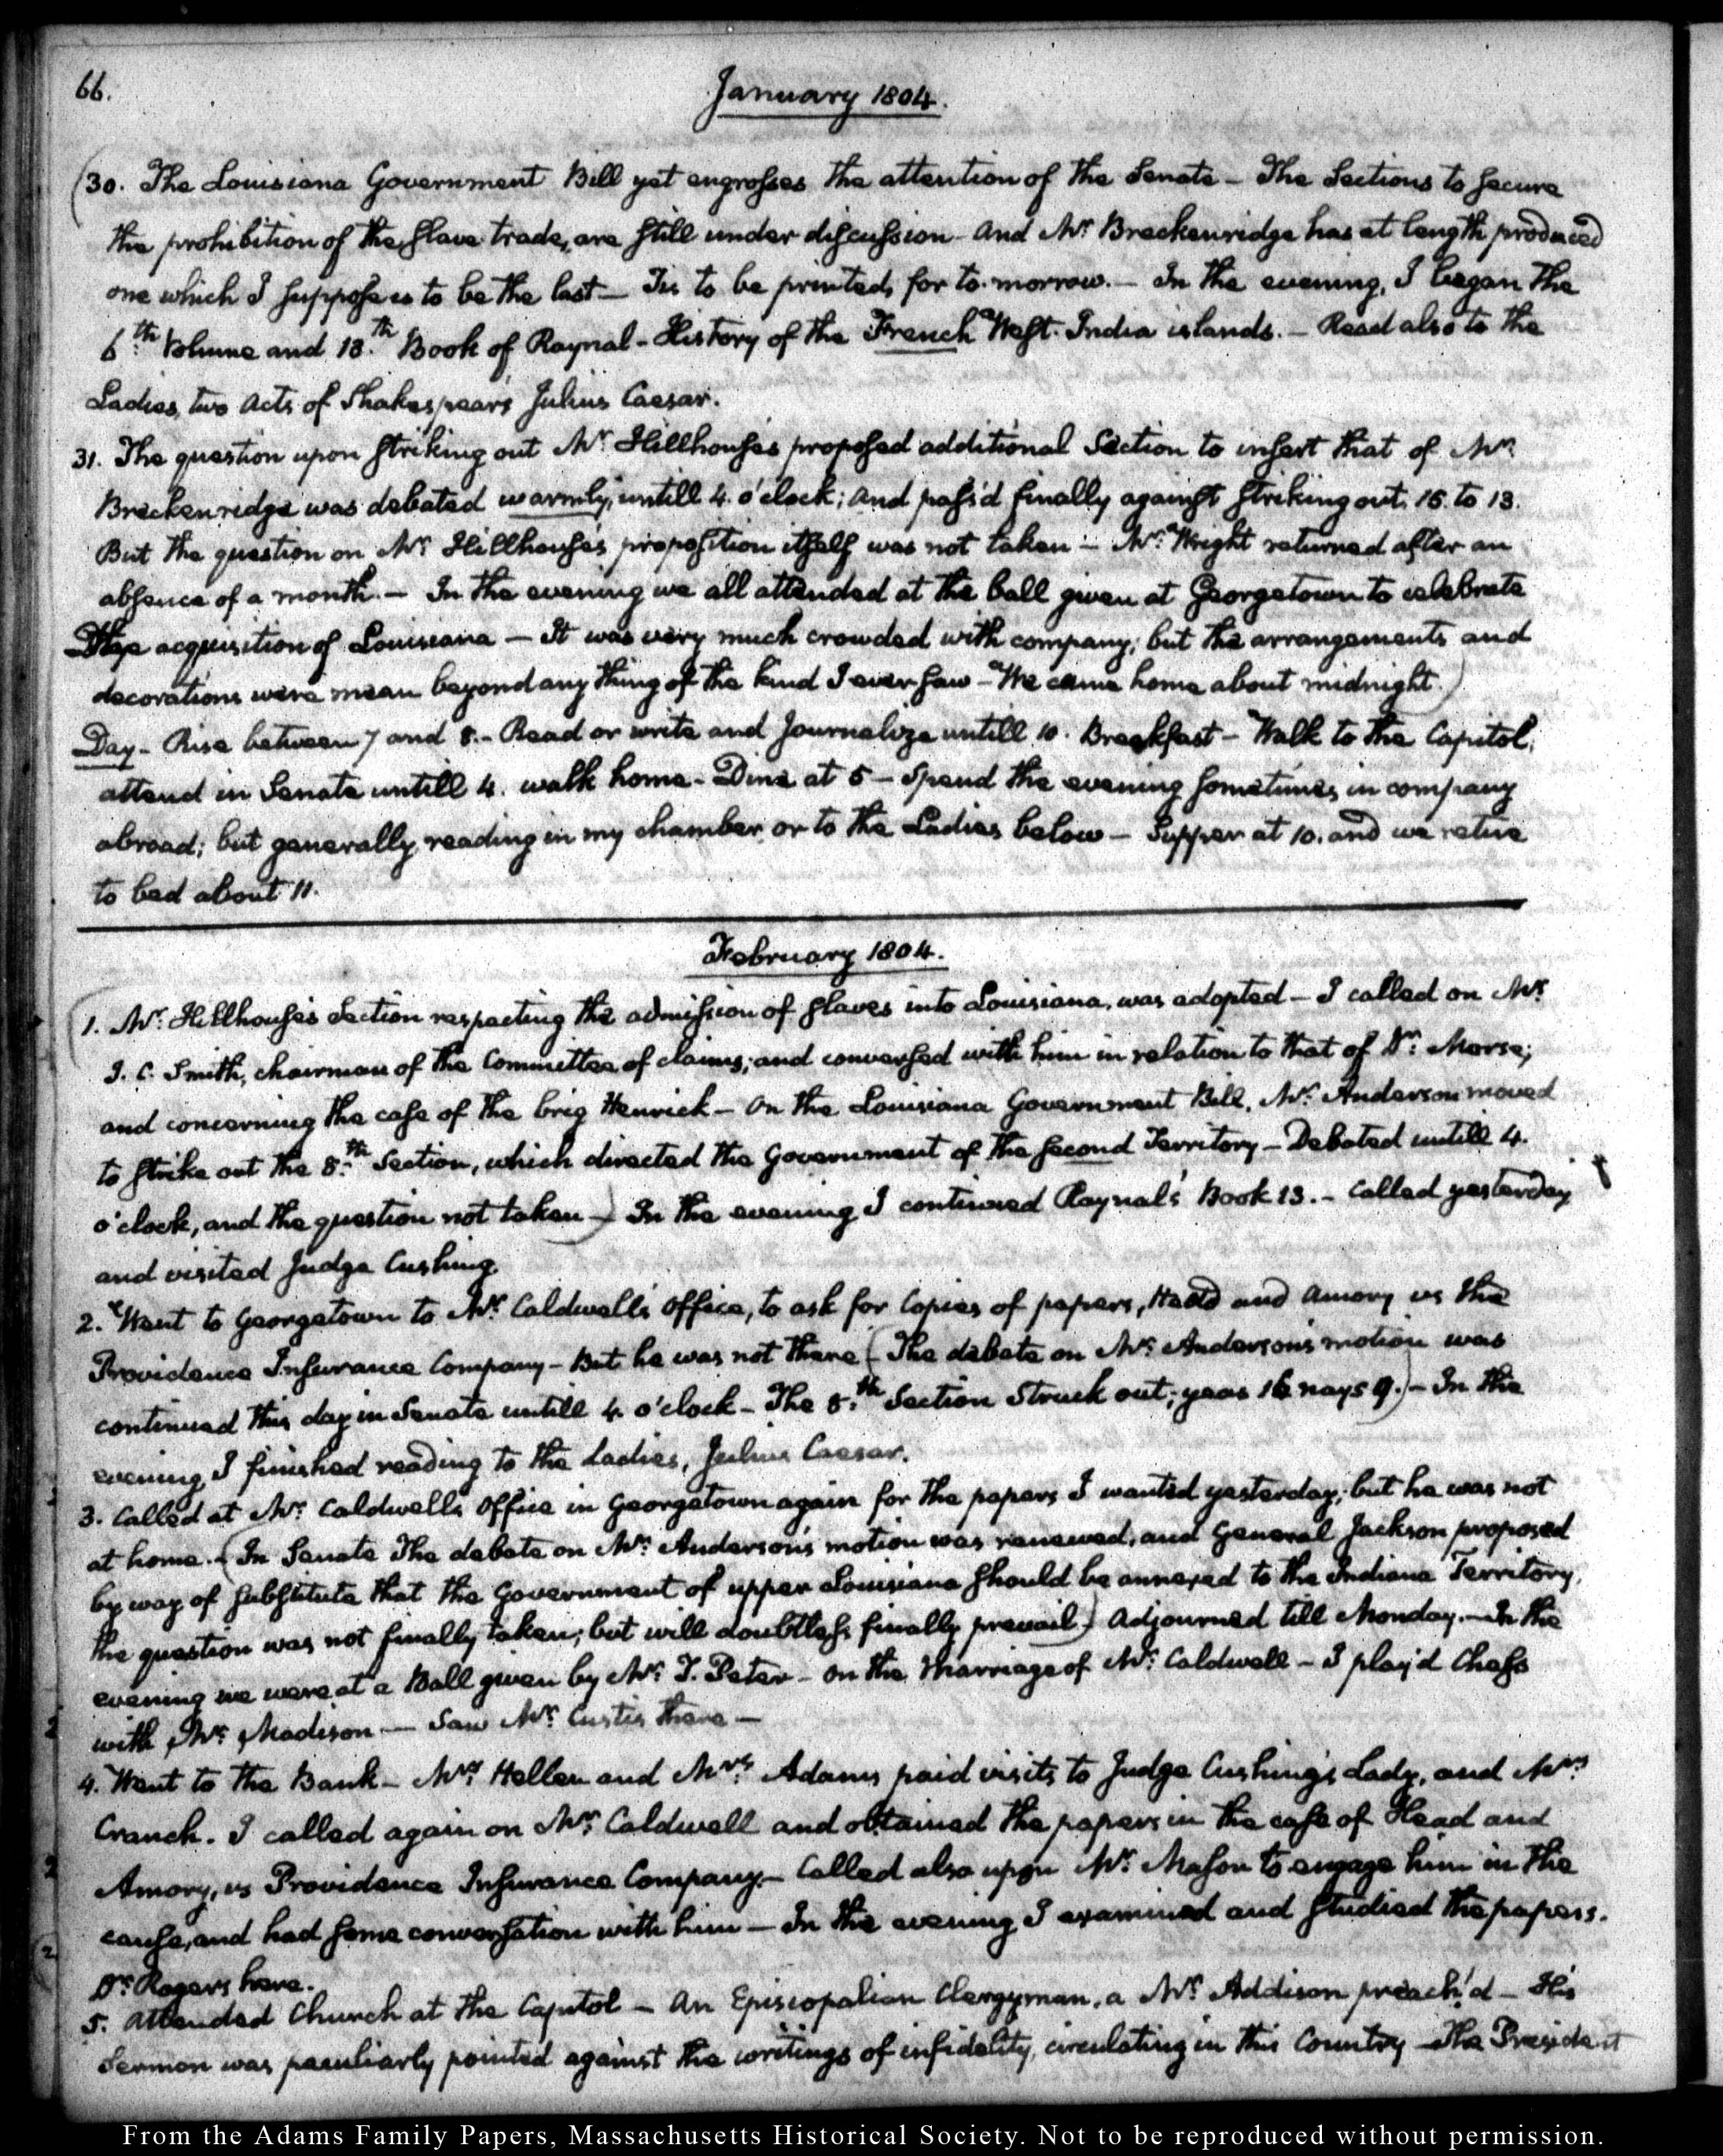 66.
January 1804.
30. The Louisiana Government Bill yet engrosses the attention of the Senate – The Sections to secure
the prohibition of the slave trade, are still under discussion – And Mr. Breckenridge has at length produced
one which I suppose is to be the last – Tis to be printed, for to-morrow. – In the evening, I began the
6th Volume and 13th Book of Raynal – History of the French West-India islands. – Read also to the
Ladies, two acts of Shakespear's Julius Caesar.
31. The question upon striking out Mr. Hillhouse's proposed additional Section to insert that of Mr.
Breckenridge was debated warmly, untill 4. o'clock; and pass'd finally against striking out. 15. to 13.
But the question on Mr. Hillhouse's proposition itself was not taken – Mr. Wright returned after an
absence of a month. – In the evening we all attended at the ball given at Georgetown to celebrate
the acquisition of Louisiana – It was very much crowded with company; but the arrangements and
decorations were mean beyond any thing of the kind I ever saw – We came home about midnight.)
Day – Rise between 7 and 8. – Read or write and Journalize untill 10. Breakfast – Walk to the Capitol,
attend in Senate untill 4. walk home – Dine at 5 – Spend the evening sometimes in company
abroad; but generally reading in my chamber, or to the Ladies below – Supper at 10. and we retire
to bed about 11.
February 1804.
1. Mr. Hillhouse's Section respecting the admission of slaves into Louisiana, was adopted – I called on Mr.
J. C. Smith, chairman of the Committee of claims; and conversed with him in relation to that of Dr. Morse;
and concerning the case of the brig Henrick – On the Louisiana Government Bill, Mr. Anderson moved
to strike out the 8th Section, which directed the Government of the second Territory – Debated untill 4.
o'clock, and the question not taken –) In the evening I continued Raynal's Book 13. – Called yesterday
and visited Judge Cushing.
2. Went to Georgetown to Mr. Caldwell's office, to ask for Copies of papers, Head and Amory vs the
Providence Insurance Company – But he was not there (The debate on Mr. Anderson's motion was
continued this day in Senate untill 4. o'clock – The 8th Section Struck out; yeas 16 nays 9.) – In the
evening I finished reading to the Ladies, Julius Caesar.
3. Called at Mr. Caldwell's office in Georgetown again for the papers I wanted yesterday; but he was not
at home. – (In Senate the debate on Mr. Anderson's motion was renewed, and General Jackson proposed
by way of substitute that the Government of upper Louisiana should be annexed to the Indiana Territory,
the question was not finally taken; but will doubtless finally prevail.) Adjourned till Monday. – In the
evening we were at a Ball given by Mr. T. Peter – on the Marriage of Mr. Caldwell – I play'd Chess
with Mr. Madison – Saw Mr. Custis there –
4. Went to the Bank – Mrs. Hellen and Mrs. Adams paid visits to Judge Cushing's Lady, and Mrs.
Cranch. I called again on Mr. Caldwell and obtained the papers in the case of Head and
Amory, vs Providence Insurance Company. – Called also upon Mr. Mason to engage him in the
cause, and had some conversation with him – In the evening I examined and studied the papers.
Dr. Rogers here.
5. Attended Church at the Capitol – An Episcopalian Clergyman, a Mr. Addison preach'd – His
Sermon was peculiarly pointed against the writings of infidelity, circulating in this Country – The President
From the Adams Family Papers, Massachusetts Historical Society. Not to be reproduced without permission.